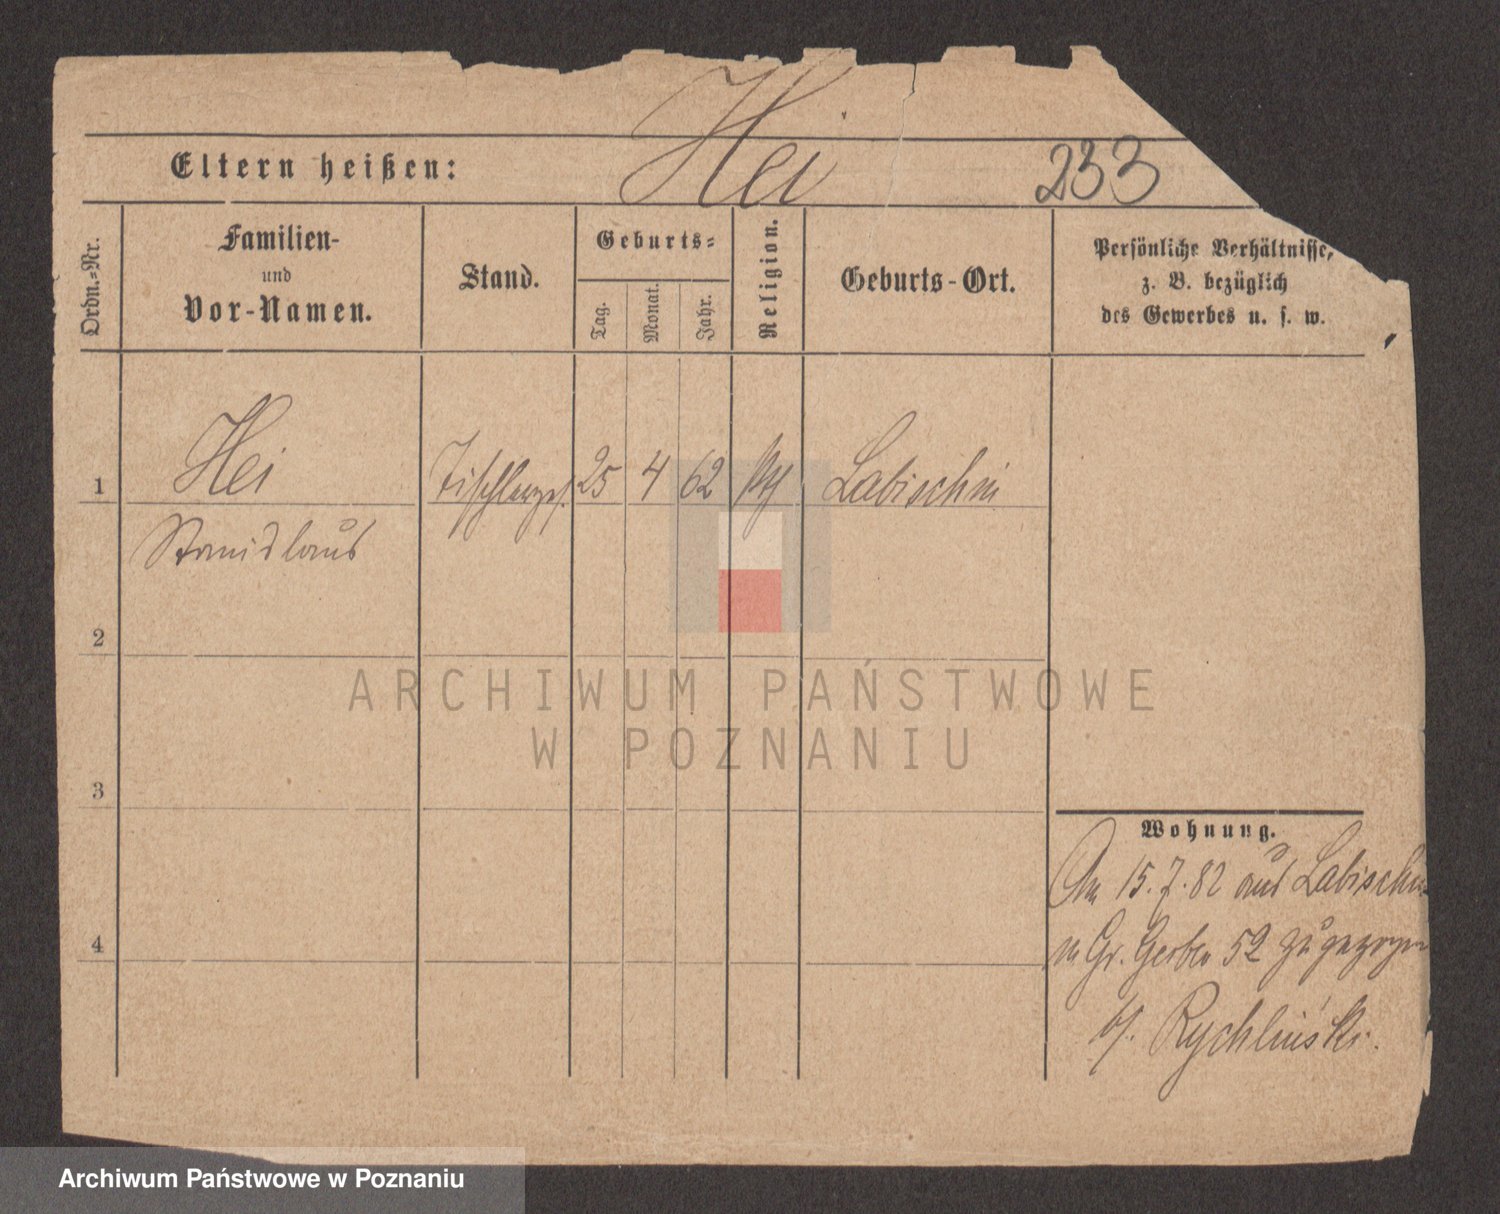 Hei
233
Eltern heißen:
Ordn.-Nr.
Familien-
und
Vor-Namen.
Stand.
Geburts-
Tag.
Monat.
Jahr.
Religion.
Geburts-Ort.
Persönliche Verhältnisse,
z. B. bezüglich
des Gewerbes u. s. w.
1 Hei Tischlerges. 25 4 62 kth Labischin
Stanislaus
2
3
4
Wohnung.
Am 15.7.82 aus Labischin
Gr. Gerber 52 zugezogen
b/. Rychliński.
ARCHIWUM PAŃSTWOWE
W POZNANIU
Archiwum Państwowe w Poznaniu